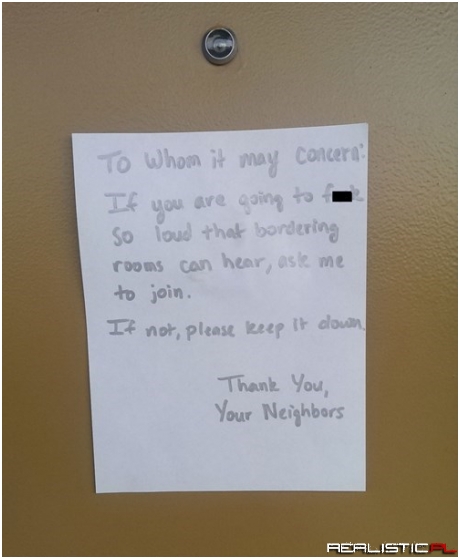 To Whom it may concern:
If you are going to f███k
so loud that bordering
rooms can hear, ask me
to join.
If not, please keep it down.
Thank You,
Your Neighbors
REALISTIC.PL